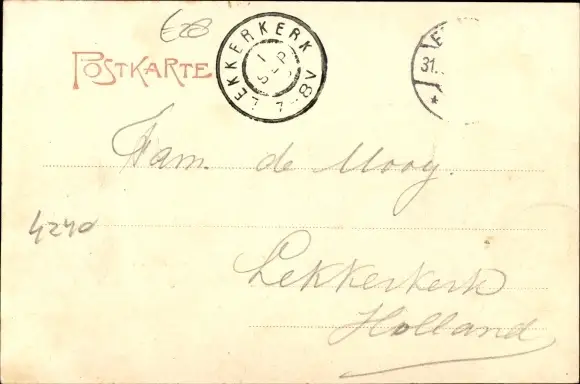 €28
POSTKARTE
LEKKERKERK
1 SEP
7-8V
31.
Fam. de Mooy.
4240
Lekkerkerk
Holland